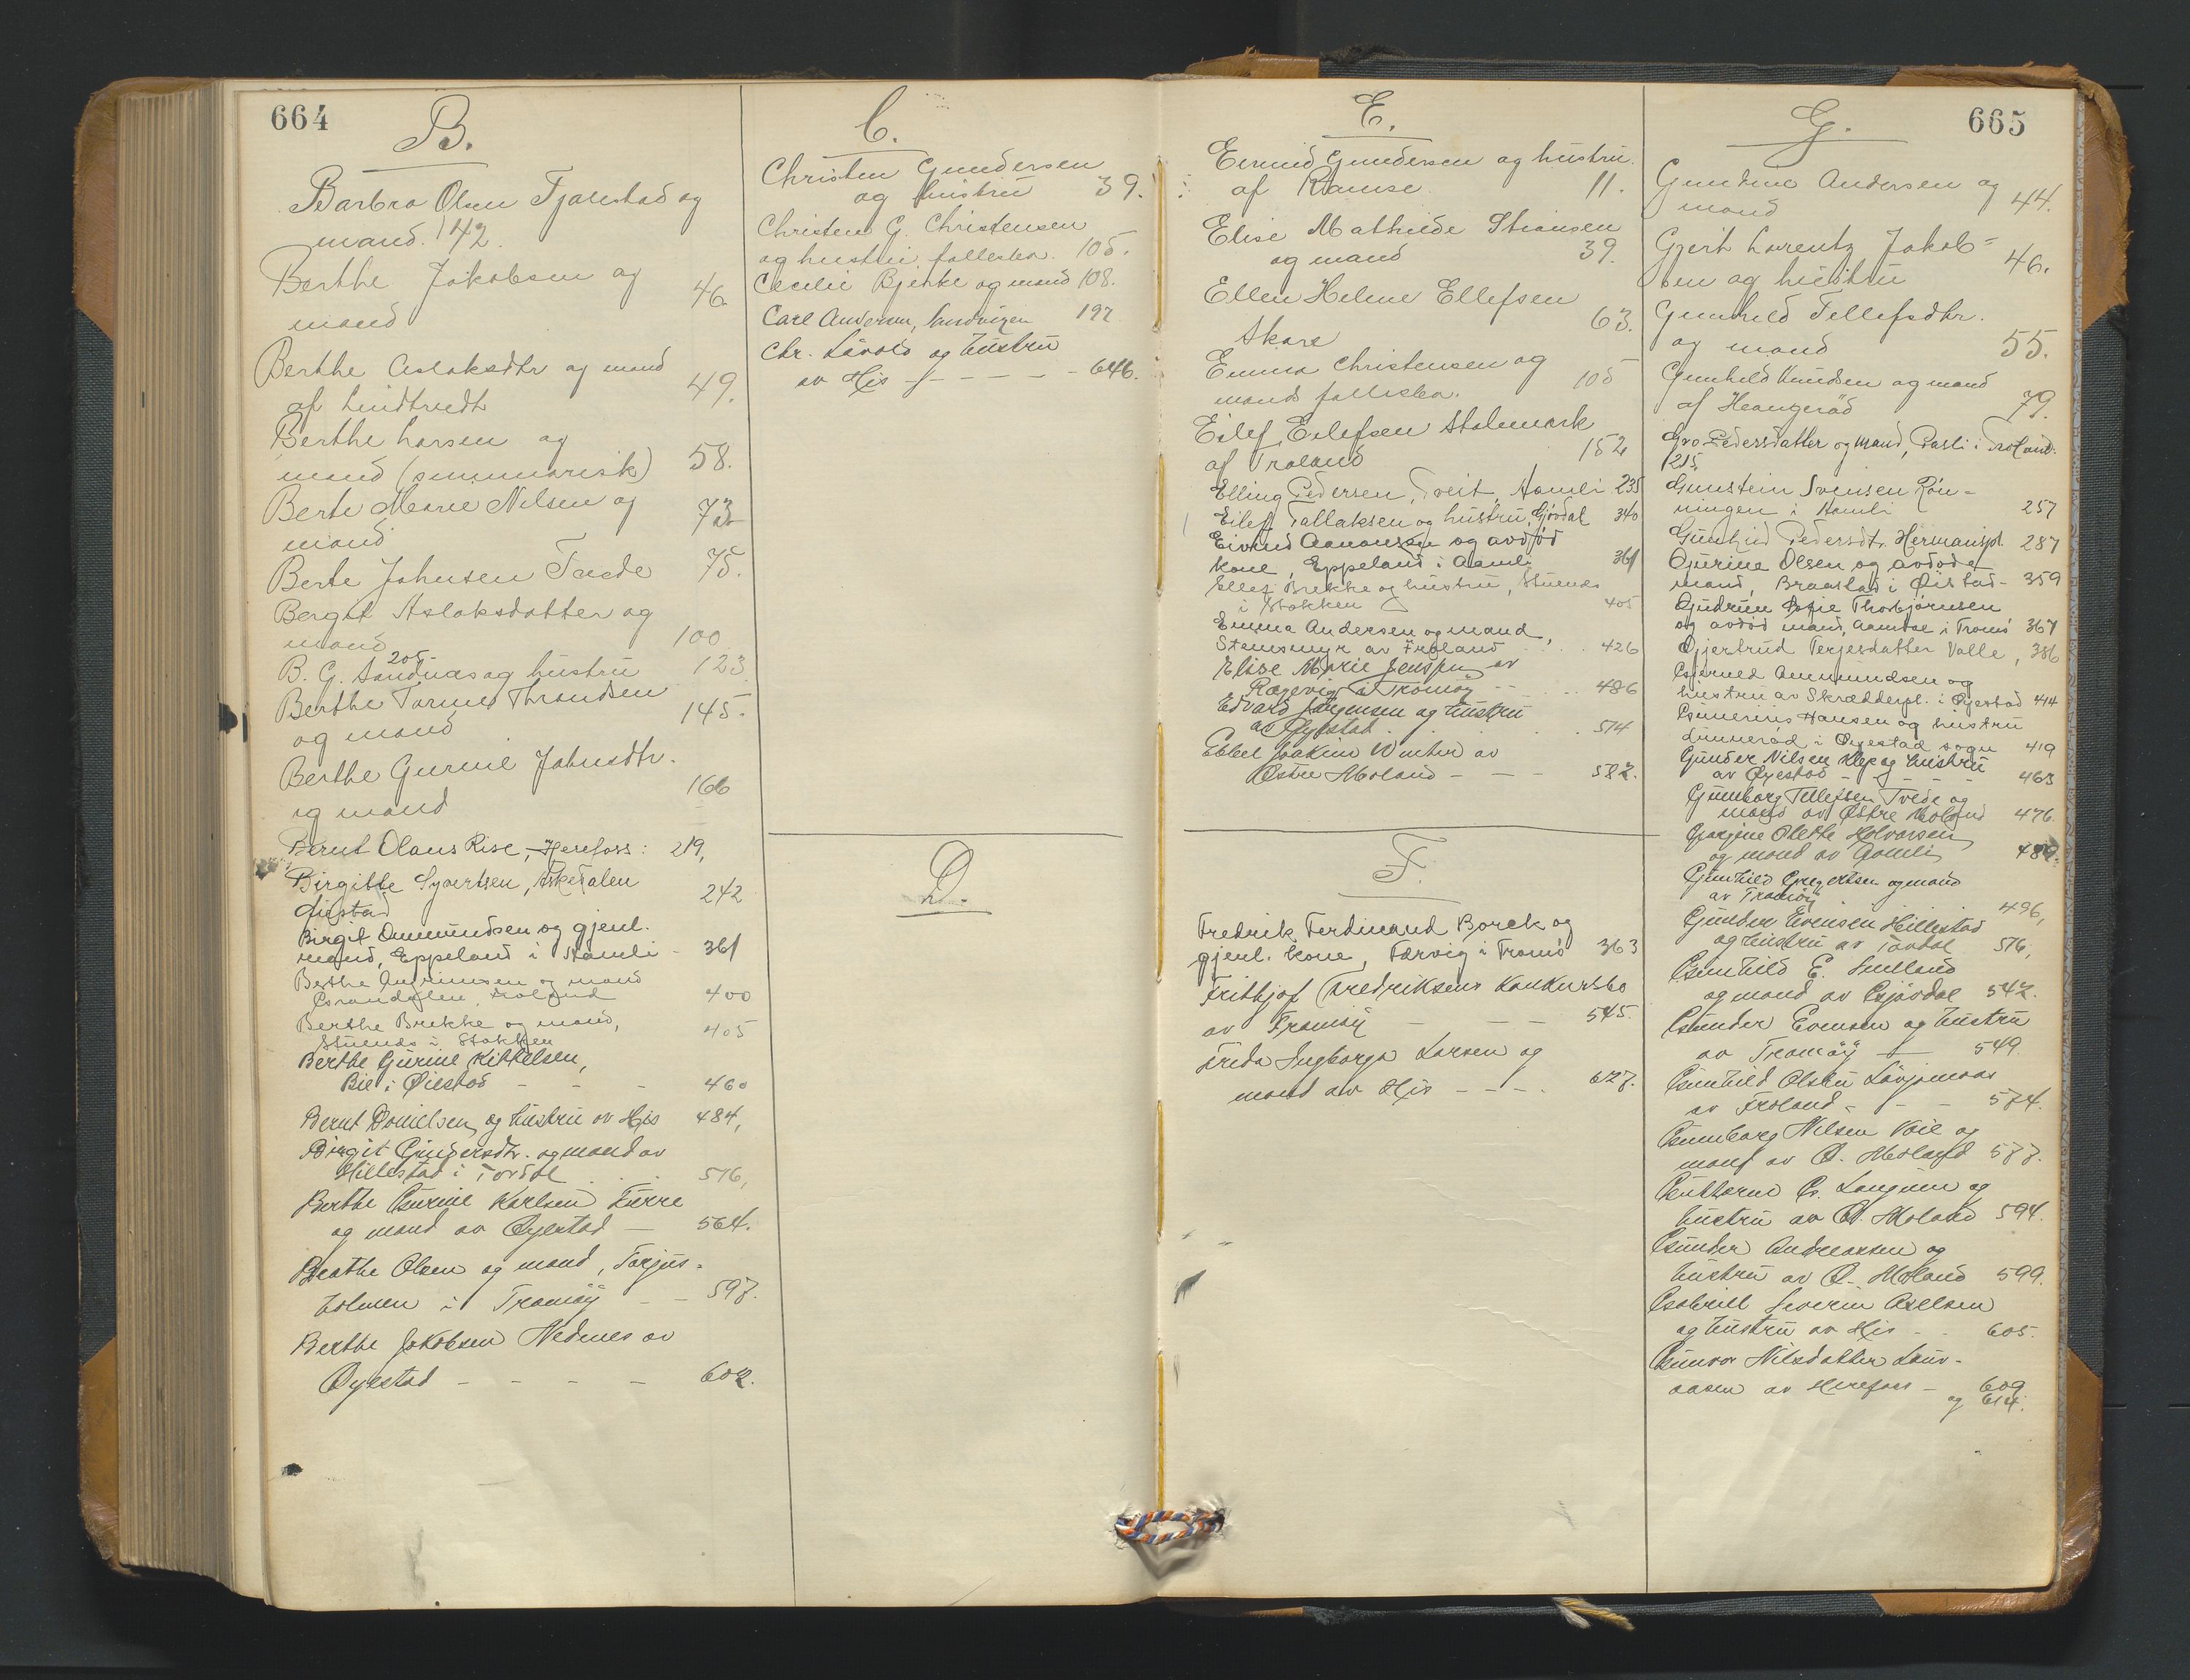 664
B.
Barbro Olsen Fjalestad og
mand. 142.
Berthe Jakobsen og
mand 46
Berthe Aslaksdtr og mand
af Lindtvedt 49.
Berthe Larsen og
mand (summarisk) 58.
Berte Marie Nilsen og
mand 73
Berte Johnsen Tvede 75.
Bergit Aslaksdatter og
mand 100
205
B. G. Sandnæs og hustru 123
Berthe Tomine Throndsen
og mand 145.
Berthe Gurine Johnsdtr.
og mand 166
Bernt Olaus Rise, Herefoss: 219,
Birgitte Syvertsen, Askedalen
Øiestad 242
Birgit Ommundsen og gjenl.
mand, Eppeland i Aamli - 361
Berthe og mand
Froland 400
Berthe Brekke og mand,
Stuenes i Stokken 405
Berthe Gurine Kittelsen,
Bie i Øiestad - - - 460
Bernt Danielsen og hustru av His 484,
Birgit Gundersdtr. og mand av
Hillestad i Tovdal . . . 516,
Berthe Gurine Karlsen Furre
og mand av Øyestad - 564.
Beathe Olsen og mand, Torjus-
holmen i Tromøy - - 597.
Berthe Jakobsen Nedenes av
Øyestad - - - - 602.
C.
Christen Gundersen
og hustru 39.
Christen G. Christensen
og hustru fællesbo. 105.
Cecilie Bjerke og mand 108.
Carl Andersen, Sandvigen 197
Chr. Løvold og hustru
av His - - - - - 646.
D.
E.
Eivind Gundersen og hustru.
af Ramse 11.
Elise Mathilde Stiansen
og mand 39.
Ellen Helene Ellefsen
Skare 63.
Emma Christensen og
mands fællesbo. 105
Eilef Eilefsen Stalemork
af Froland 152
Elling Pedersen, Tveit, Aamli 235
Eilef Tallaksen og hustru, Gjøvdal 340
Eivind Aanonsen og avdød
kone, Eppeland i Aamli 361
Ellef Brekke og hustru, Stuenes
i Stokken 405
Emma Andersen og mand,
Stemsmyr av Froland . . . 426
Elise Marie Jensen av
Rægevig i Tromøy - - . . 486
Edvard Jørgensen og hustru
av Øyestad . . . . . 514
Ebbel Joakim Winter av
Østre Moland - - - 582.
F.
Fredrik Ferdinand Borck og
gjenl. kone, Færvig i Tromø 363
Frithjof Fredriksens konkursbo
av Tromøy - - - 545.
Frida Ingborga Larsen og
mand av His - - - . 627.
G.
665
Gundine Andersen og
mand 44.
Gjert Lorentz Jakob=
sen og hustru 46.
Gunhild Tellefsdtr.
og mand 55.
Gunhild Knudsen og mand
af Heangerød 79.
Gro Pedersdatter og mand, i Froland.
215
Gunstein Svensen Røn-
ningen i Aamli 257
Gunhild Pedersdtr. Hermanspl. 287
Gurine Olsen og avdøde
mand, Braastad i Øistad - 359
Gudrun Thorbjørnsen
og avdød mand, i Tromø 367
Gjertrud Terjesdatter Valle, 386
Gjerned Ommundsen og
hustru av Skrædderpl. i Øyestad 414
Hansen og hustru
i Øyestad sogn 419
Gunder Nilsen Klep og hustru
av Øyestad - - - - 463
Gunborg Tellefsen Tvede og
mand av Østre Moland 476.
Olette Halvorsen
og mand av Aamli 489.
Gunhild Gregertsen og mand
av Tromøy . . 496,
Gunder Evensen Hillestad
og hustru av Tovdal 516,
Gunhild E.
og mand av Gjøvdal 542.
Gunder Evensen og hustru
av Tromøy - 549
Gunhild Olsen Løvjomaas
av Froland - - - 574.
Gunborg Nilsen Voie og
mand av Ø. Moland 577.
Guttorm G. Langmm og
hustru av Ø. Moland 594.
Gunder Andreassen og
hustru av Ø. Moland 599.
Gabriel Severin Axelsen
og hustru av His - . 605.
Gunvor Nilsdatter Lauv-
aasen av Herefoss - 609
og 614.